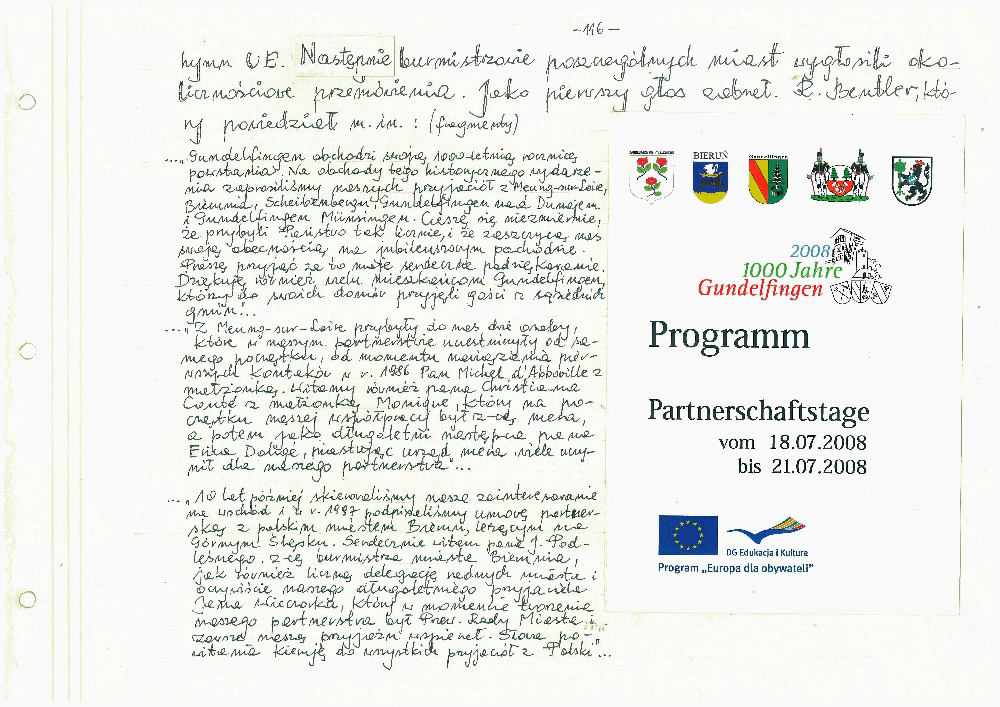 -116-
hymn UE. Następnie burmistrzowie poszczególnych miast wygłosili oko-
licznościowe przemówienia. Jako pierwszy głos zabrał R. Bentler, któ-
ry powiedział m.in.: (fragmenty)
..."Gundelfingen obchodzi swoją 1000-letnią rocznicę
powstania. Na obchody tego historycznego wydarze-
nia zaprosiliśmy naszych przyjaciół z Meung-sur-Loire,
Bierunia, Scheibenbergu, Gundelfingen nad Dunajem
i Gundelfingen Münsingen. Cieszę się niezmiernie,
że przybyli Państwo tak licznie, i że zaszczycą nas
swoją obecnością na jubileuszowym pochodzie.
Proszę przyjąć za to moje serdeczne podziękowanie.
Dziękuję również wielu mieszkańcom Gundelfingen,
którzy do swoich domów przyjęli gości z sąsiednich
gmin"...
..."Z Meung-sur-Loire przybyły do nas dwie osoby,
które w naszym partnerstwie uczestniczyły od sa-
mego początku, od momentu nawiązania pier-
wszych kontaktów w r. 1986 Pan Michel d'Abboville z
małżonką. Witamy również pana Christiana
Conté z małżonką Monique, który na po-
czątku naszej współpracy był z-cą mera,
a potem jako długoletni następca pana
Erica Doligé, piastując urząd mera wiele uczy-
nił dla naszego partnerstwa"...
..."10 lat później skierowaliśmy nasze zainteresowanie
na wschód i w r. 1997 podpisaliśmy umowę partner-
ską z polskim miastem Bieruń, leżącym na
Górnym Śląsku. Serdecznie witam pana J. Pod-
leśnego, z-cę burmistrza miasta Bierunia,
jak również liczną delegację radnych miasta i
oczywiście naszego długoletniego przyjaciela
Jana Wieczorka, który w momencie tworzenia
naszego partnerstwa był Przew. Rady Miasta i
zawsze naszą przyjaźń wspierał. Słowa po-
witania kieruję do wszystkich przyjaciół z Polski"...
MEUNG SUR LOIRE
BIERUŃ
Gundelfingen
2008
1000 Jahre
Gundelfingen
Programm
Partnerschaftstage
vom 18.07.2008
bis 21.07.2008
DG Edukacja i Kultura
Program „Europa dla obywateli”